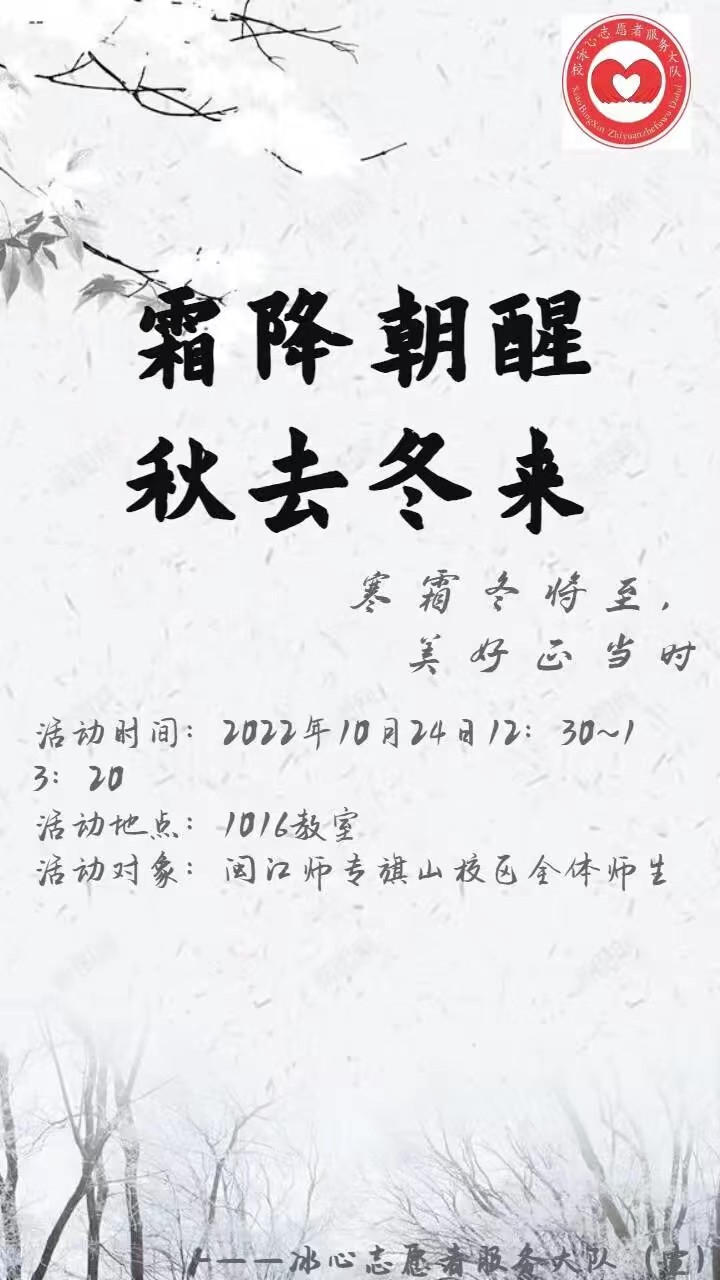 校冰心志愿者服务大队
XiaoBingXin Zhiyuanzhefuwu Dadui
霜降朝醒
秋去冬来
寒霜冬将至，
美好正当时
活动时间：2022年10月24日12：30~1
3：20
活动地点：1016教室
活动对象：闽江师专旗山校区全体师生
——冰心志愿者服务大队（宣）